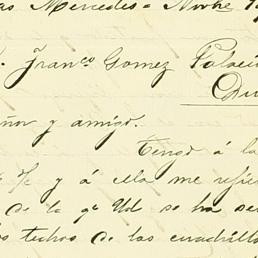 as Mercedes = Novbre
Franco Gomez Palaci
Du
ñor y amigo.
Tengo á la
y á ella me refie
de la qe Ud se ha se
tubos de las cuadrill